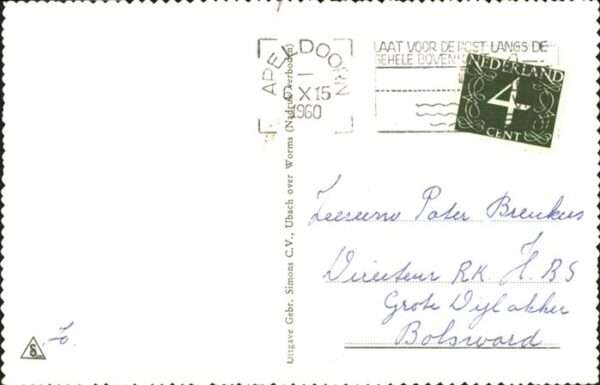 APELDOORN
6 X 15
1960
LAAT VOOR DE POST LANGS DE
GEHELE BOVEN
NEDERLAND
4
CENT
Uitgave Gebr. Simons C.V., Ubach over Worms (Nadruk verboden)
Zeereerw Pater Brenkus
Directeur R.K. H.B.S
Grote Dijlakker
Bolsward
S